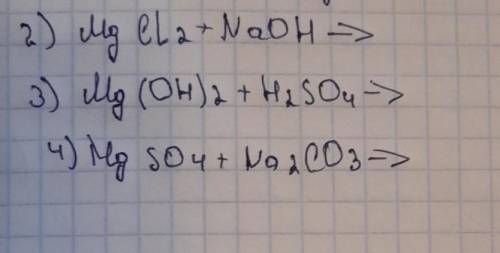 2) Mg Cl2 + NaOH →
3) Mg(OH)2 + H2SO4 →
4) Mg SO4 + Na2CO3 →